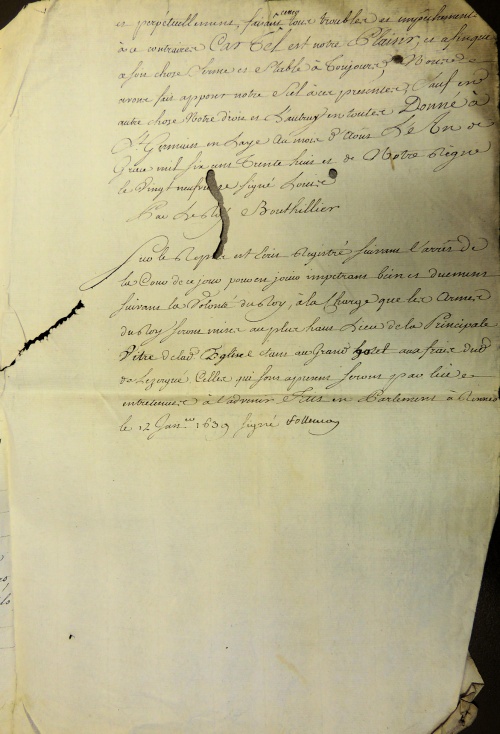 et perpétuellement, faisant cesser tous troubles et empêchement
à ce contraires Car Tel est notre Plaisir, et afin que
ce soit chose ferme et stable à toujours, Nous
avons fait apposer notre Scel à ces presentes, Sauf en
autre chose Notre droit et L'autruy en toutes Donné à
St Germain en Laye au mois d'Août L'An de
Grace mil six cens trente huit et de Notre Regne
le Vingt neufvieme signé Louis
Par Le Roy Bouthillier
Sur le Reply est Ecrit Registré suivant l'arrest de
la Cour de ce jour pour en jouir impetrans bien et duement
suivant la Volonté du Roy, à la Charge que les Armes
du Roy seront mises au plus haut Lieu de la Principale
Vitre de lad Eglise
et
qui sont apresent seront par luy
entretenues à l'advenir Fait en Parlement à Rennes
le 12 Janer 1639 signé